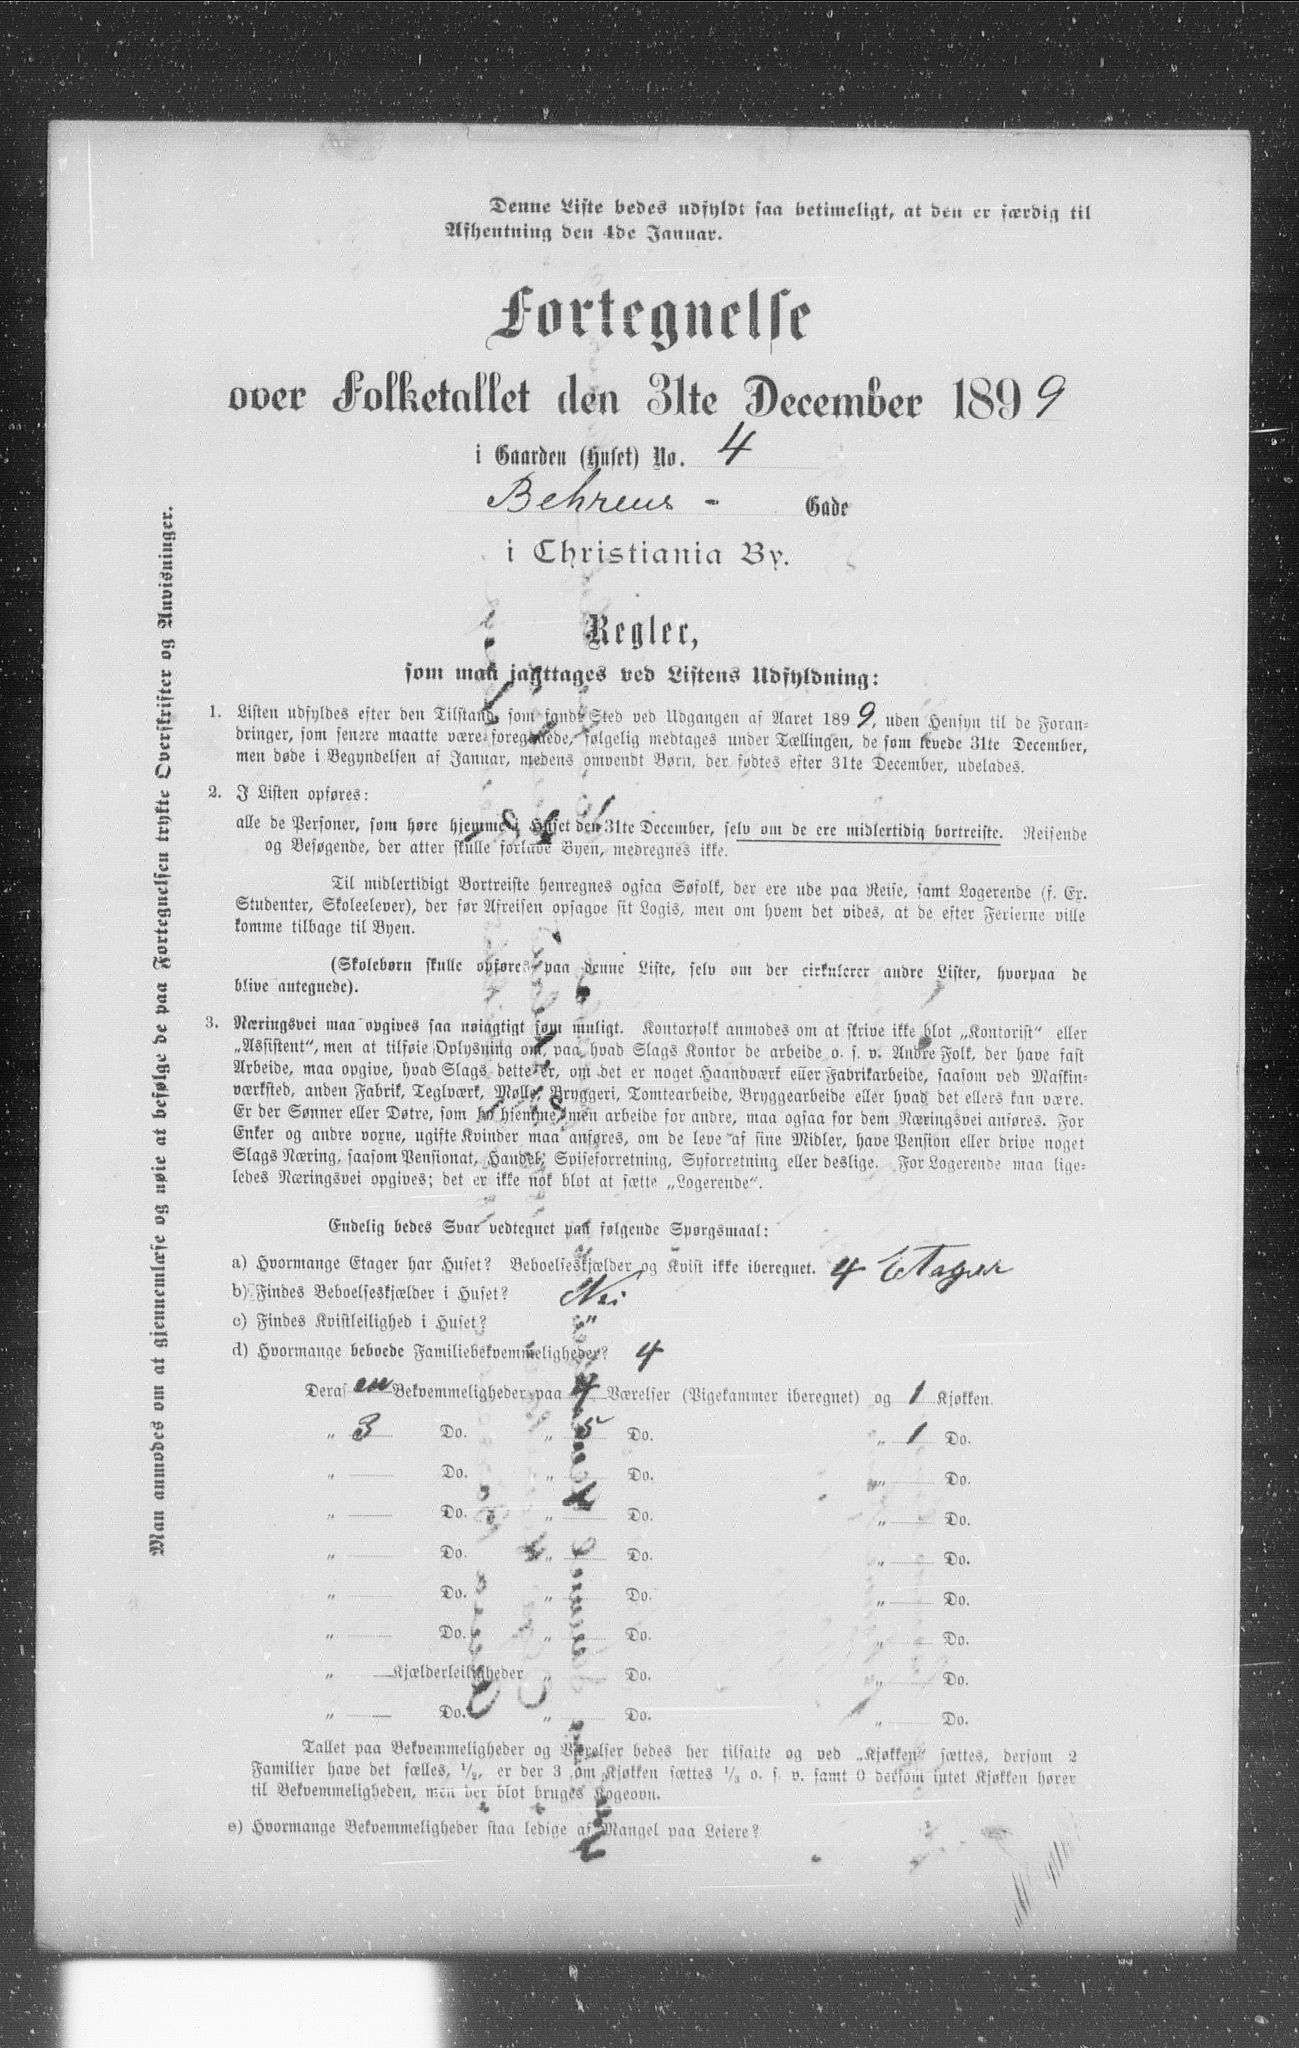 Denne Liste bedes udfyldt saa betimeligt, at den er færdig til
Afhentning den 4de Januar.
Fortegnelse
over Folketallet den 31te December 1899
i Gaarden (Huset) No. 4
Behrens - Gade
i Christiania By.
Regler,
som maa iagttages ved Listens Udfyldning:
1. Listen udfyldes efter den Tilstand, som fandt Sted ved Udgangen af Aaret 1899, uden Hensyn til de Foran-
dringer, som senere maatte være foregaaede, følgelig medtages under Tællingen, de som levede 31te December,
men døde i Begyndelsen af Januar, medens omvendt Børn, der fødtes efter 31te December, udelades.
2. I Listen opføres:
alle de Personer, som høre hjemme i Huset den 31te December, selv om de ere midlertidig bortreiste. Reisende
og Besøgende, der atter skulle forlade Byen, medregnes ikke.
Til midlertidigt Bortreiste henregnes ogsaa Søfolk, der ere ude paa Reise, samt Logerende (f. Ex.
Studenter, Skoleelever), der før Afreisen opsagde sit Logis, men om hvem det vides, at de efter Ferierne ville
komme tilbage til Byen.
(Skolebørn skulle opføres paa denne Liste, selv om der cirkulerer andre Lister, hvorpaa de
blive antegnede).
3. Næringsvei maa opgives saa nøiagtigt som muligt. Kontorfolk anmodes om at skrive ikke blot „Kontorist“ eller
„Assistent“, men at tilføie Oplysning om, paa hvad Slags Kontor de arbeide o. s. v. Andre Folk, der have fast
Arbeide, maa opgive, hvad Slags dette er, om det er noget Haandværk eller Fabrikarbeide, saasom ved Maskin-
værksted, anden Fabrik, Teglværk, Mølle, Bryggeri, Tomtearbeide, Bryggearbeide eller hvad det ellers kan være.
Er der Sønner eller Døtre, som bo hjemme, men arbeide for andre, maa ogsaa for dem Næringsvei anføres. For
Enker og andre voxne, ugifte Kvinder maa anføres, om de leve af sine Midler, have Pension eller drive noget
Slags Næring, saasom Pensionat, Handel, Spiseforretning, Syforretning eller deslige. For Logerende maa lige-
ledes Næringsvei opgives; det er ikke nok blot at sætte „Logerende“.
Endelig bedes Svar vedtegnet paa følgende Spørgsmaal:
a) Hvormange Etager har Huset? Beboelseskjælder og Kvist ikke iberegnet. 4 Etager
b) Findes Beboelseskjælder i Huset? Nei
c) Findes Kvistleilighed i Huset? "
d) Hvormange beboede Familiebekvemmeligheder? 4
Deraf en Bekvemmeligheder paa 4 Værelser (Pigekammer iberegnet) og 1 Kjøkken.
„ 3 Do. „ 5 Do. „ 1 Do.
„ Do. „ Do. „ Do.
„ Do. „ Do. „ Do.
„ Do. „ Do. „ Do.
„ Do. „ Do. „ Do.
„ Do. „ Do. „ Do.
„ Kjælderleiligheder „ Do. „ Do.
„ Do. „ Do. „ Do.
Tallet paa Bekvemmeligheder og Værelser bedes her tilsatte og ved „Kjøkken“ sættes, dersom 2
Familier have det fælles, 1/2, er der 3 om Kjøkken sættes 1/3 o. s. v. samt 0 dersom intet Kjøkken hører
til Bekvemmeligheden, men der blot bruges Kogeovn.
e) Hvormange Bekvemmeligheder staa ledige af Mangel paa Leiere?
Man anmodes om at gjennemlæse og nøie at befølge de paa Fortegnelsen trykte Overskrifter og Anvisninger.